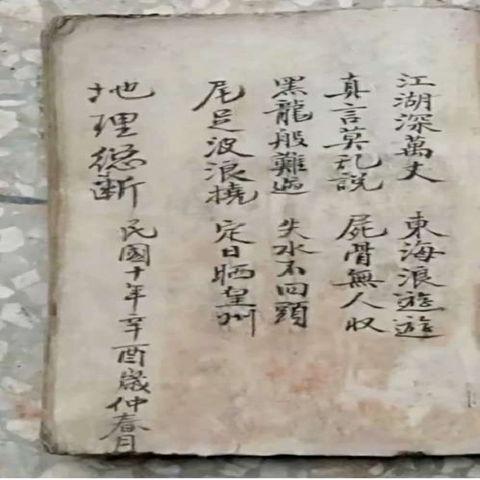 江湖深萬丈 東海浪遊遊
真言莫乱說 屍骨無人収
黑龍般難過 失水不回頭
尾足波浪撓 定日晒皇州
地理總斷 民國十年辛酉歲仲春月